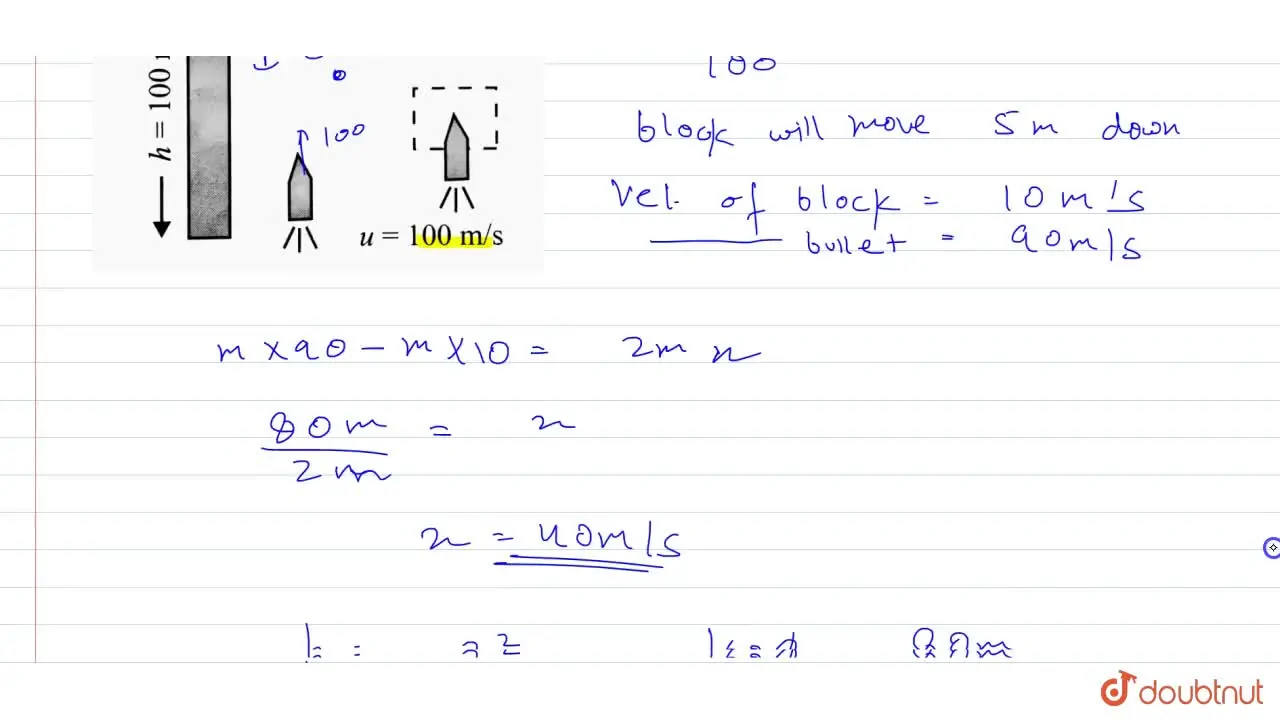 h = 100
100
100
u = 100 m/s
block will move 5m down
Vel. of block = 10m/s
bullet = 90m/s
m x 90 - m x 10 = 2m x
80m = x
2m
x = 40m/s
doubtnut